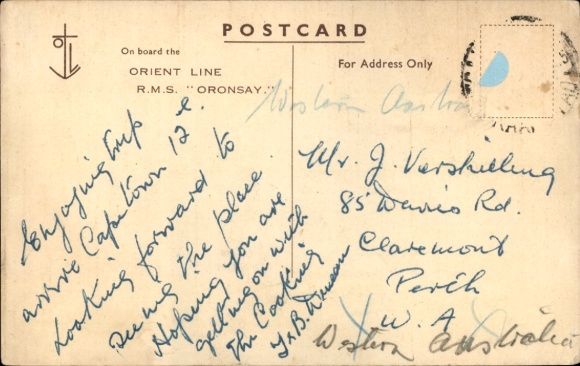 POSTCARD
On board the
ORIENT LINE
R.M.S. "ORONSAY."
For Address Only
Enjoying trip
arrive Cape Town 12
Looking forward to
seeing the place.
Hoping you are
getting on with
the Cooking
Western Australia
Mr. J.
85 Davis Rd.
Claremont
Perth
W. A
Western Australia